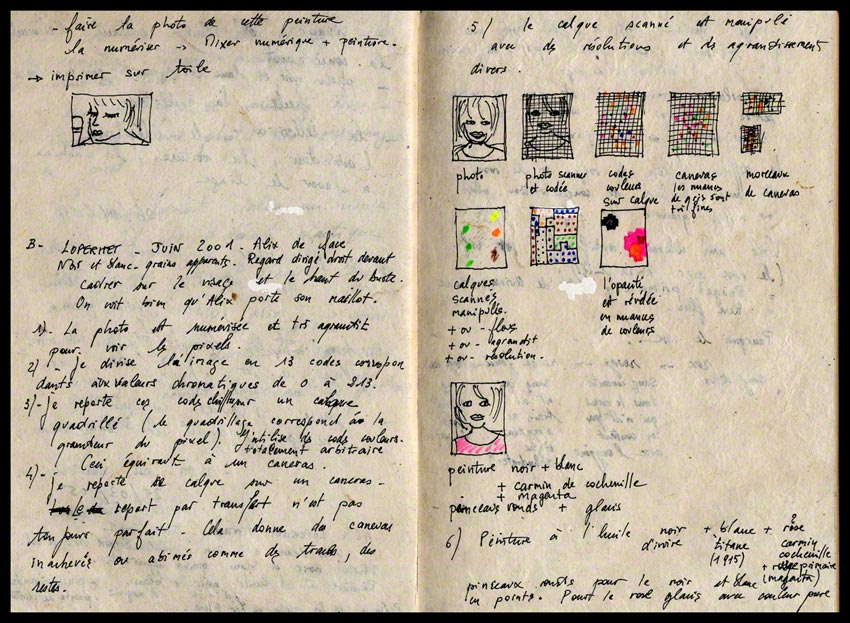 - faire la photo de cette peinture
la numériser → Mixer numérique + peinture.
→ imprimer sur toile
B - LOPERHET - JUIN 2001 - Alix de face
Noir et blanc - grains apparents. Regard dirigé droit devant
Cadrer sur le visage et le haut du buste.
On voit bien qu'Alix porte son maillot.
1) - La photo est numérisée et très agrandit
pour voir les pixels.
2) - je divise l'image en 13 codes correspon
dants aux valeurs chromatiques de 0 à 213.
3) - je reporte ces codes sur un calque
quadrillé (le quadrillage correspond à la
grandeur du pixel). J'utilise des codes couleurs.
totalement arbitraire
Ceci équivaut à un canevas.
4) - je reporte le calque sur un canevas -
report par transfert n'est pas
toujours parfait - Cela donne des canevas
inachevés ou abimés comme des traces, des
restes.
5) le calque scanné est manipulé
avec des résolutions et des agrandissement
divers.
photo
photo scannée
et codée
codes
couleurs
sur calque
canevas
les nuances
de gris sont
+ fines
morceaux
de canevas
calques
scannés
manipulés.
+ ou - flous
+ ou - agrandit
+ ou - résolution.
l'opacité
est révélée
en nuances
de couleurs
peinture noir + blanc
+ carmin de cochenille
+ magenta
pinceaux ronds + glacis
6) Peinture à l'huile noir + blanc + rose
d'ivoire titane carmin
(1915) cochenille
+ rouge primaire
(magenta)
pinceaux ronds pour le noir et blanc
en points. Pour le rose glacis avec couleur pure